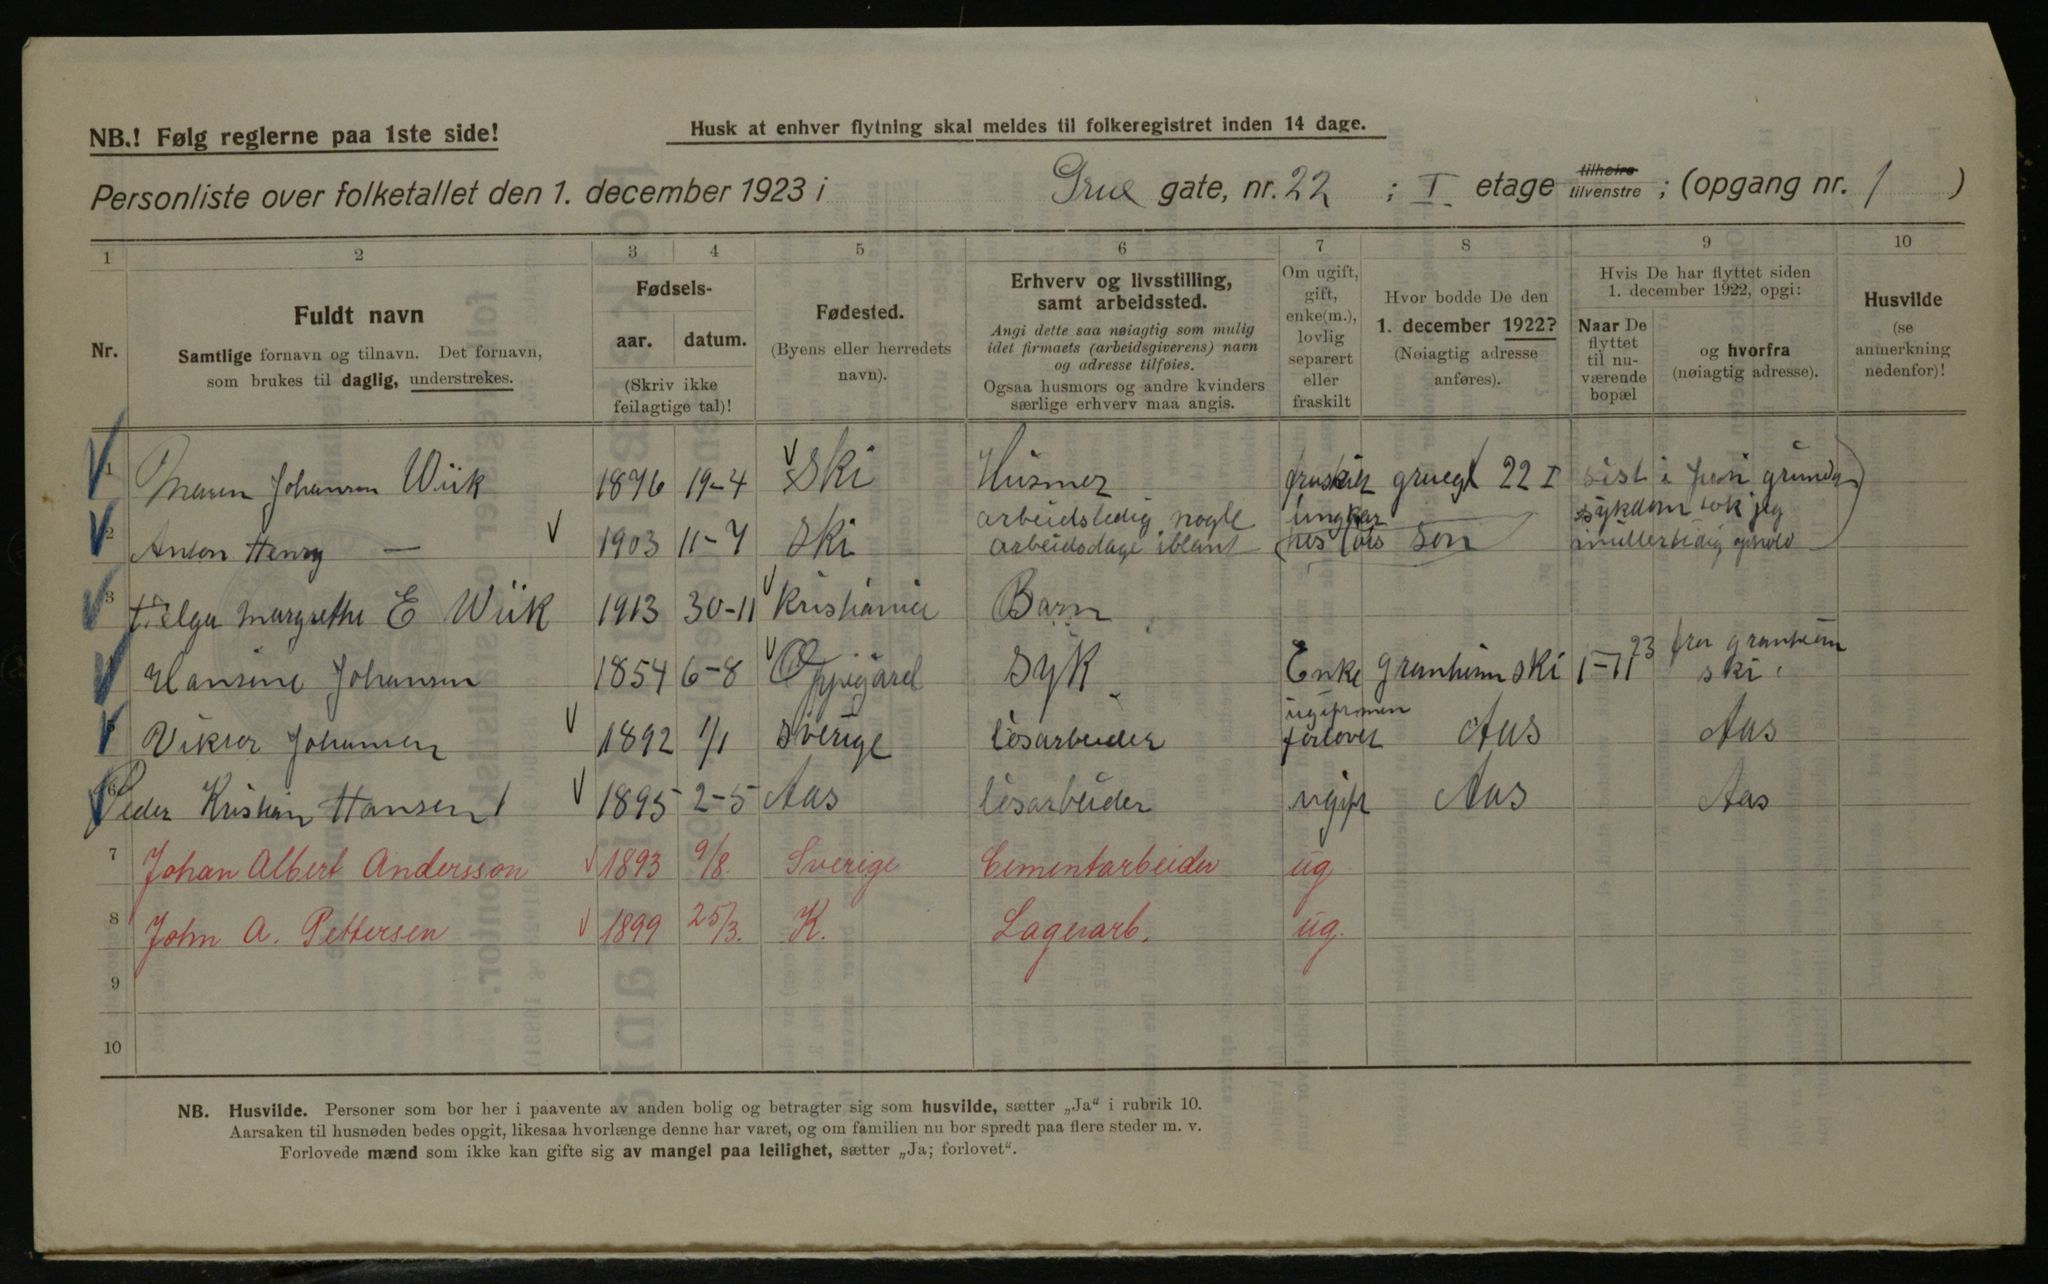 NB.! Følg reglerne paa 1ste side!
Husk at enhver flytning skal meldes til folkeregistret inden 14 dage.
Personliste over folketallet den 1. december 1923 i Grue gate, nr. 22 ; I etage tilhøire tilvenstre ; (opgang nr. 1 )
1 2 3 4 5 6 7 8 9 10
Nr.
Fuldt navn
Samtlige fornavn og tilnavn. Det fornavn,
som brukes til daglig, understrekes.
Fødsels-
aar. datum.
(Skriv ikke
feilagtige tal)!
Fødested.
(Byens eller herredets
navn).
Erhverv og livsstilling,
samt arbeidssted.
Angi dette saa nøiagtig som mulig
idet firmaets (arbeidsgiverens) navn
og adresse tilføies.
Ogsaa husmors og andre kvinders
særlige erhverv maa angis.
Om ugift,
gift,
enke(m.),
lovlig
separert
eller
fraskilt
Hvor bodde De den
1. december 1922?
(Nøiagtig adresse
anføres).
Hvis De har flyttet siden
1. december 1922, opgi:
Naar De
flyttet
til nu-
værende
bopæl
og hvorfra
(nøiagtig adresse).
Husvilde
(se
anmerkning
nedenfor)!
1 Maren Johansen Wiik 1876 19-4 Ski Husmor fraskilt gruegt 22 I sist i
2 Anton Henry — 1903 11-7 Ski arbeidsledig nogle arbeidsdage iblant ungkar hos son sykdom tok jeg midlertidig ophold
3 Helga Margrethe E Wiik 1913 30-11 Kristiania Barn
Hansine Johansen 1854 6-8 Oppegård Syk Enke granheim ski 1-11 23 fra granheim ski
Viktor Johansen 1892 1/1 Sverige løsarbeider ugift men forlovet Aas Aas
6 Peder Kristian Hansen 1895 2-5 Aas løsarbeider ugift Aas Aas
7 Johan Albert Andersson 1893 9/8. Sverige Cementarbeider ug.
8 John A. Pettersen 1899 25/3. K. Lagerarb. ug.
9
10
NB. Husvilde. Personer som bor her i paavente av anden bolig og betragter sig som husvilde, sætter „Ja“ i rubrik 10.
Aarsaken til husnøden bedes opgit, likesaa hvorlænge denne har varet, og om familien nu bor spredt paa flere steder m. v.
Forlovede mænd som ikke kan gifte sig av mangel paa leilighet, sætter „Ja; forlovet“.